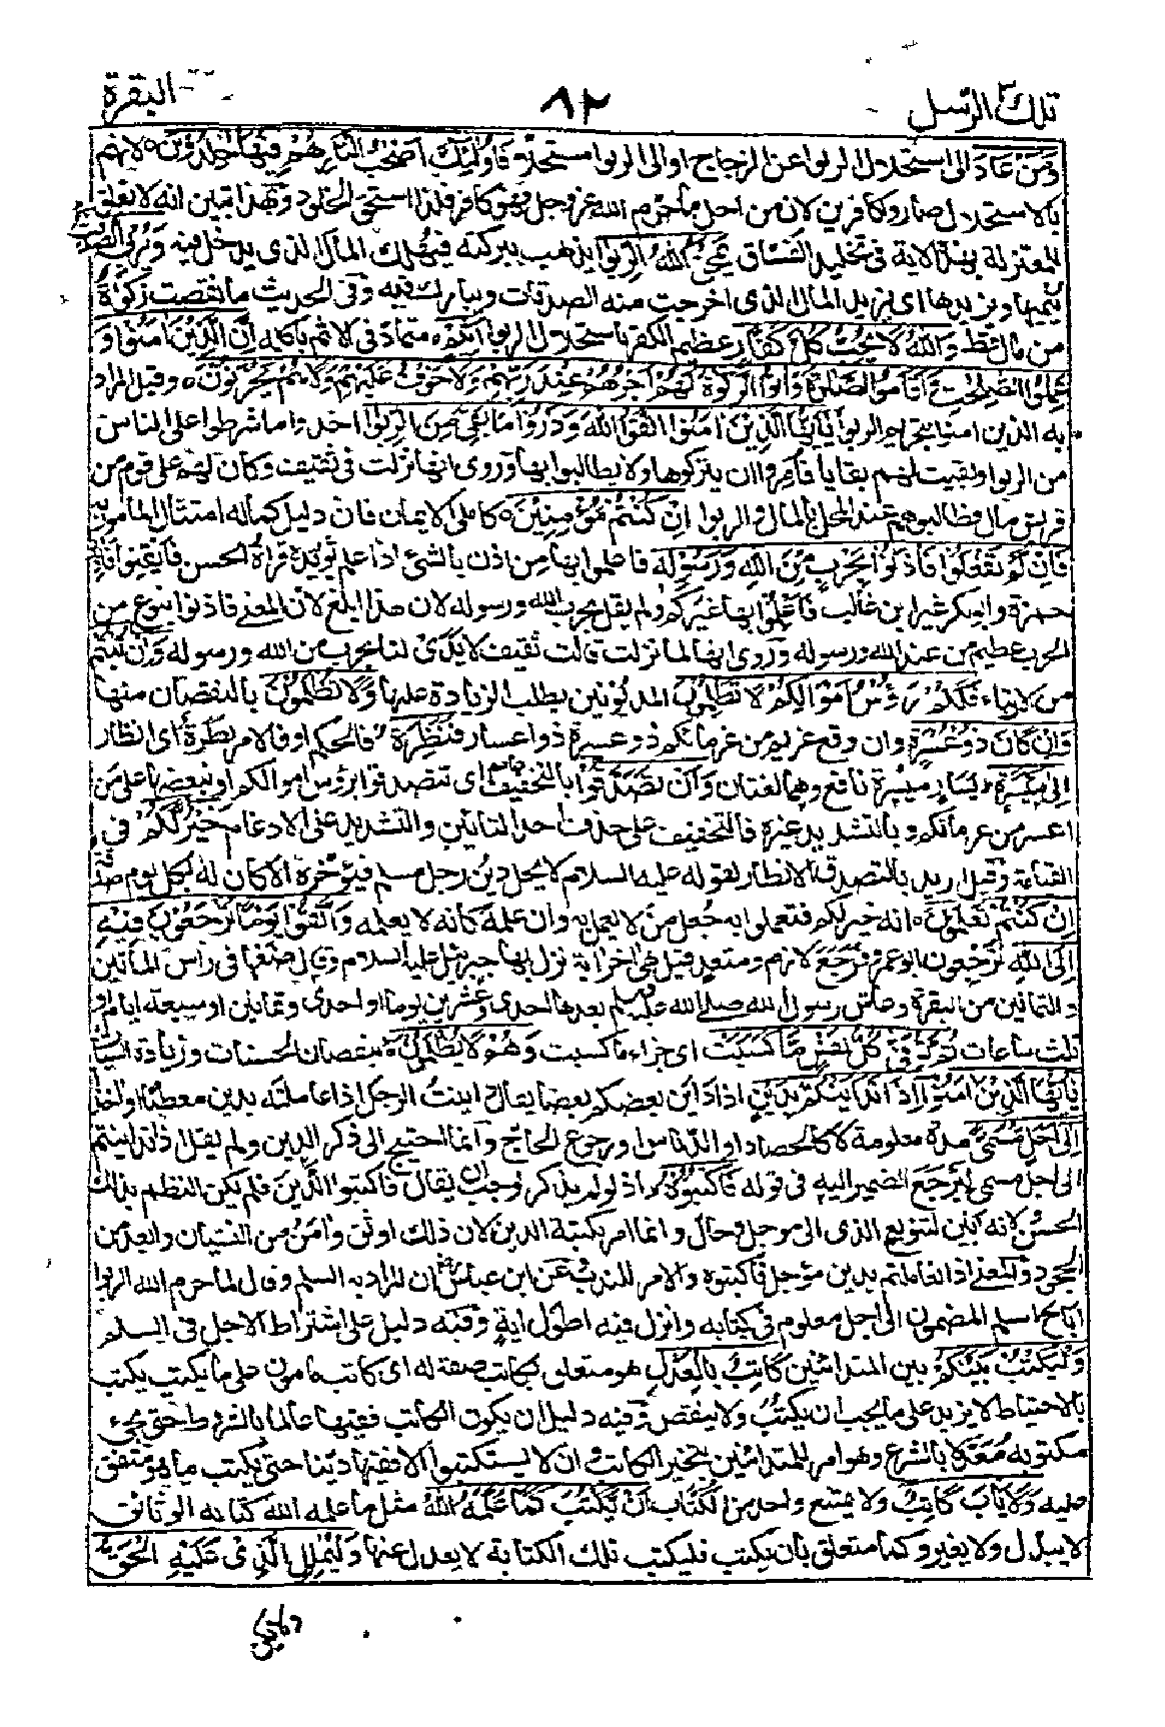 تلك الرسل ٣
٨٢
البقرة
وَمَنْ عَادَ الى استحلال الربوا عن الزجاج او الى الربوا مستحلا فَأُولٰئِكَ أَصْحٰبُ النَّارِ هُمْ فِيهَا خٰلِدُونَ ٥ لانهم
بالاستحلال صاروا كافرين لان من احل ما حرم الله عز وجل فهو كافر فلذا استحق الخلود وبهذا تبين انه لا تعلق
للمعتزلة بهذه الآية فى تخليد الفساق يَمْحَقُ اللهُ الرِّبٰوا يذهب ببركته ويهلك المال الذى يدخل فيه وَيُرْبِى الصَّدَقٰتِ
ينميها ويزيدها اى يزيد المال الذى اخرجت منه الصدقات ويبارك فيه وفى الحديث ما نقصت زكوة
من مال قط وَاللهُ لَا يُحِبُّ كُلَّ كَفَّارٍ عظيم الكفر باستحلال الربوا أَثِيمٍ ٥ متماد فى الاثم باكله إِنَّ الَّذِينَ اٰمَنُوا وَ
عَمِلُوا الصّٰلِحٰتِ وَأَقَامُوا الصَّلٰوةَ وَاٰتَوُا الزَّكٰوةَ لَهُمْ أَجْرُهُمْ عِنْدَ رَبِّهِمْ وَلَا خَوْفٌ عَلَيْهِمْ وَلَا هُمْ يَحْزَنُونَ ٥ وقيل المراد
به الذين امنوا بتحريم الربوا يٰأَيُّهَا الَّذِينَ اٰمَنُوا اتَّقُوا اللهَ وَذَرُوا مَا بَقِىَ مِنَ الرِّبٰوا اخذوا ما شرطوا على الناس
من الربوا وبقيت لهم بقايا فأمروا ان يتركوها ولا يطالبوا بها وروى انها نزلت فى ثقيف وكان لهم على قوم من
قريش مال فطالبوهم عند المحل بالمال والربوا إِنْ كُنْتُمْ مُؤْمِنِينَ ٥ كاملى الايمان فان دليل كماله امتثال المأمور به
فَإِنْ لَمْ تَفْعَلُوا فَأْذَنُوا بِحَرْبٍ مِنَ اللهِ وَرَسُولِهِ فاعلموا بها من اذن بالشئ اذا علم يؤيده قراءة الحسن فأيقنوا فَاٰذِنُوا
حمزة وابو بكر غير ابن غالب فأعلموا بها غيركم ولم يقل بحرب الله ورسوله لان هذا ابلغ لان المعنى فأذنوا بنوع من
الحرب عظيم من عند الله ورسوله وروى انها لما نزلت قالت ثقيف لا يدى لنا بحرب من الله ورسوله وَإِنْ تُبْتُمْ
من الارباء فَلَكُمْ رُؤُسُ أَمْوَالِكُمْ لَا تَظْلِمُونَ المديونين بطلب الزيادة عليها وَلَا تُظْلَمُونَ بالنقصان منها
وَإِنْ كَانَ ذُو عُسْرَةٍ وان وقع غريم من غرمائكم ذو عسرة ذو اعسار فَنَظِرَةٌ فالحكم او فالامر نظرة اى انظار
إِلَى مَيْسَرَةٍ يسار ميسُرة نافع وهما لغتان وَأَنْ تَصَدَّقُوا بالتخفيف عاصم اى تتصدقوا برؤس اموالكم او ببعضها على من
اعسر من غرمائكم وبالتشديد غيره فالتخفيف على حذف احد التائين والتشديد على الادغام خَيْرٌ لَكُمْ فى
القيامة وقيل اريد بالتصدق الانظار لقوله عليه السلام لا يحل دين رجل مسلم فيؤخره الا كان له بكل يوم صدقة
إِنْ كُنْتُمْ تَعْلَمُونَ ٥ انه خير لكم فتعملوا به جعل من لا يعمل به وان علمه كانه لا يعلمه وَاتَّقُوا يَوْمًا تُرْجَعُونَ فِيهِ
إِلَى اللهِ تَرْجِعون ابو عمرو فرجع لازم ومتعد قيل هى اخر اية نزل بها جبريل عليه السلام وقال ضعها فى رأس المأتين
والثمانين من البقرة وعاش رسول الله صلى الله عليه وسلم بعدها احدى وعشرين يوما او احدى وثمانين او سبعة ايام او
ثلث ساعات ثُمَّ تُوَفّٰى كُلُّ نَفْسٍ مَا كَسَبَتْ اى جزاء ما كسبت وَهُمْ لَا يُظْلَمُونَ ٥ بنقصان الحسنات وزيادة السيأت
يٰأَيُّهَا الَّذِينَ اٰمَنُوا إِذَا تَدَايَنْتُمْ بِدَيْنٍ اذا داين بعضكم بعضا يقال داينت الرجل اذا عاملته بدين معطيا او اخذا
إِلَى أَجَلٍ مُسَمًّى مدة معلومة لا كالحصاد او الدياس او رجوع الحاج وانما احتيج الى ذكر الدين ولم يقل اذا تداينتم
الى اجل مسمى ليرجع الضمير اليه فى قوله فَاكْتُبُوهُ اذ لو لم يذكر لوجب ان يقال فاكتبوا الدين فلم يكن النظم بذلك
الحسن ولانه ابين لتنويع الدين الى مؤجل وحال وانما امر بكتبة الدين لان ذلك اوثق وامن من النسيان وابعد من
الجحود والمعنى اذا تعاملتم بدين مؤجل فاكتبوه والامر للندب وعن ابن عباس ان المراد به السلم وقال لما حرم الله الربوا
اباح السلم المضمون الى اجل معلوم فى كتابه وانزل فيه اطول اية وفيه دليل على اشتراط الاجل فى السلم
وَلْيَكْتُبْ بَيْنَكُمْ بين المتداينين كَاتِبٌ بِالْعَدْلِ هو متعلق بكاتب صفة له اى كاتب مامون على ما يكتب يكتب
بالاحتياط لا يزيد على ما يجب ان يكتب ولا ينقص وفيه دليل ان يكون الكاتب فقيها عالما بالشروط حتى يجىء
مكتوبه معدلا بالشرع وهو امر للمتداينين بتخير الكاتب وان لا يستكتبوا الا فقيها دينا حتى يكتب ما هو متفق
عليه وَلَا يَأْبَ كَاتِبٌ ولا يمتنع واحد من الكتاب أَنْ يَكْتُبَ كَمَا عَلَّمَهُ اللهُ مثل ما علمه الله كتابة الوثائق
لا يبدل ولا يغير وكما متعلق بان يكتب فليكتب تلك الكتابة لا يعدل عنها وَلْيُمْلِلِ الَّذِى عَلَيْهِ الْحَقُّ